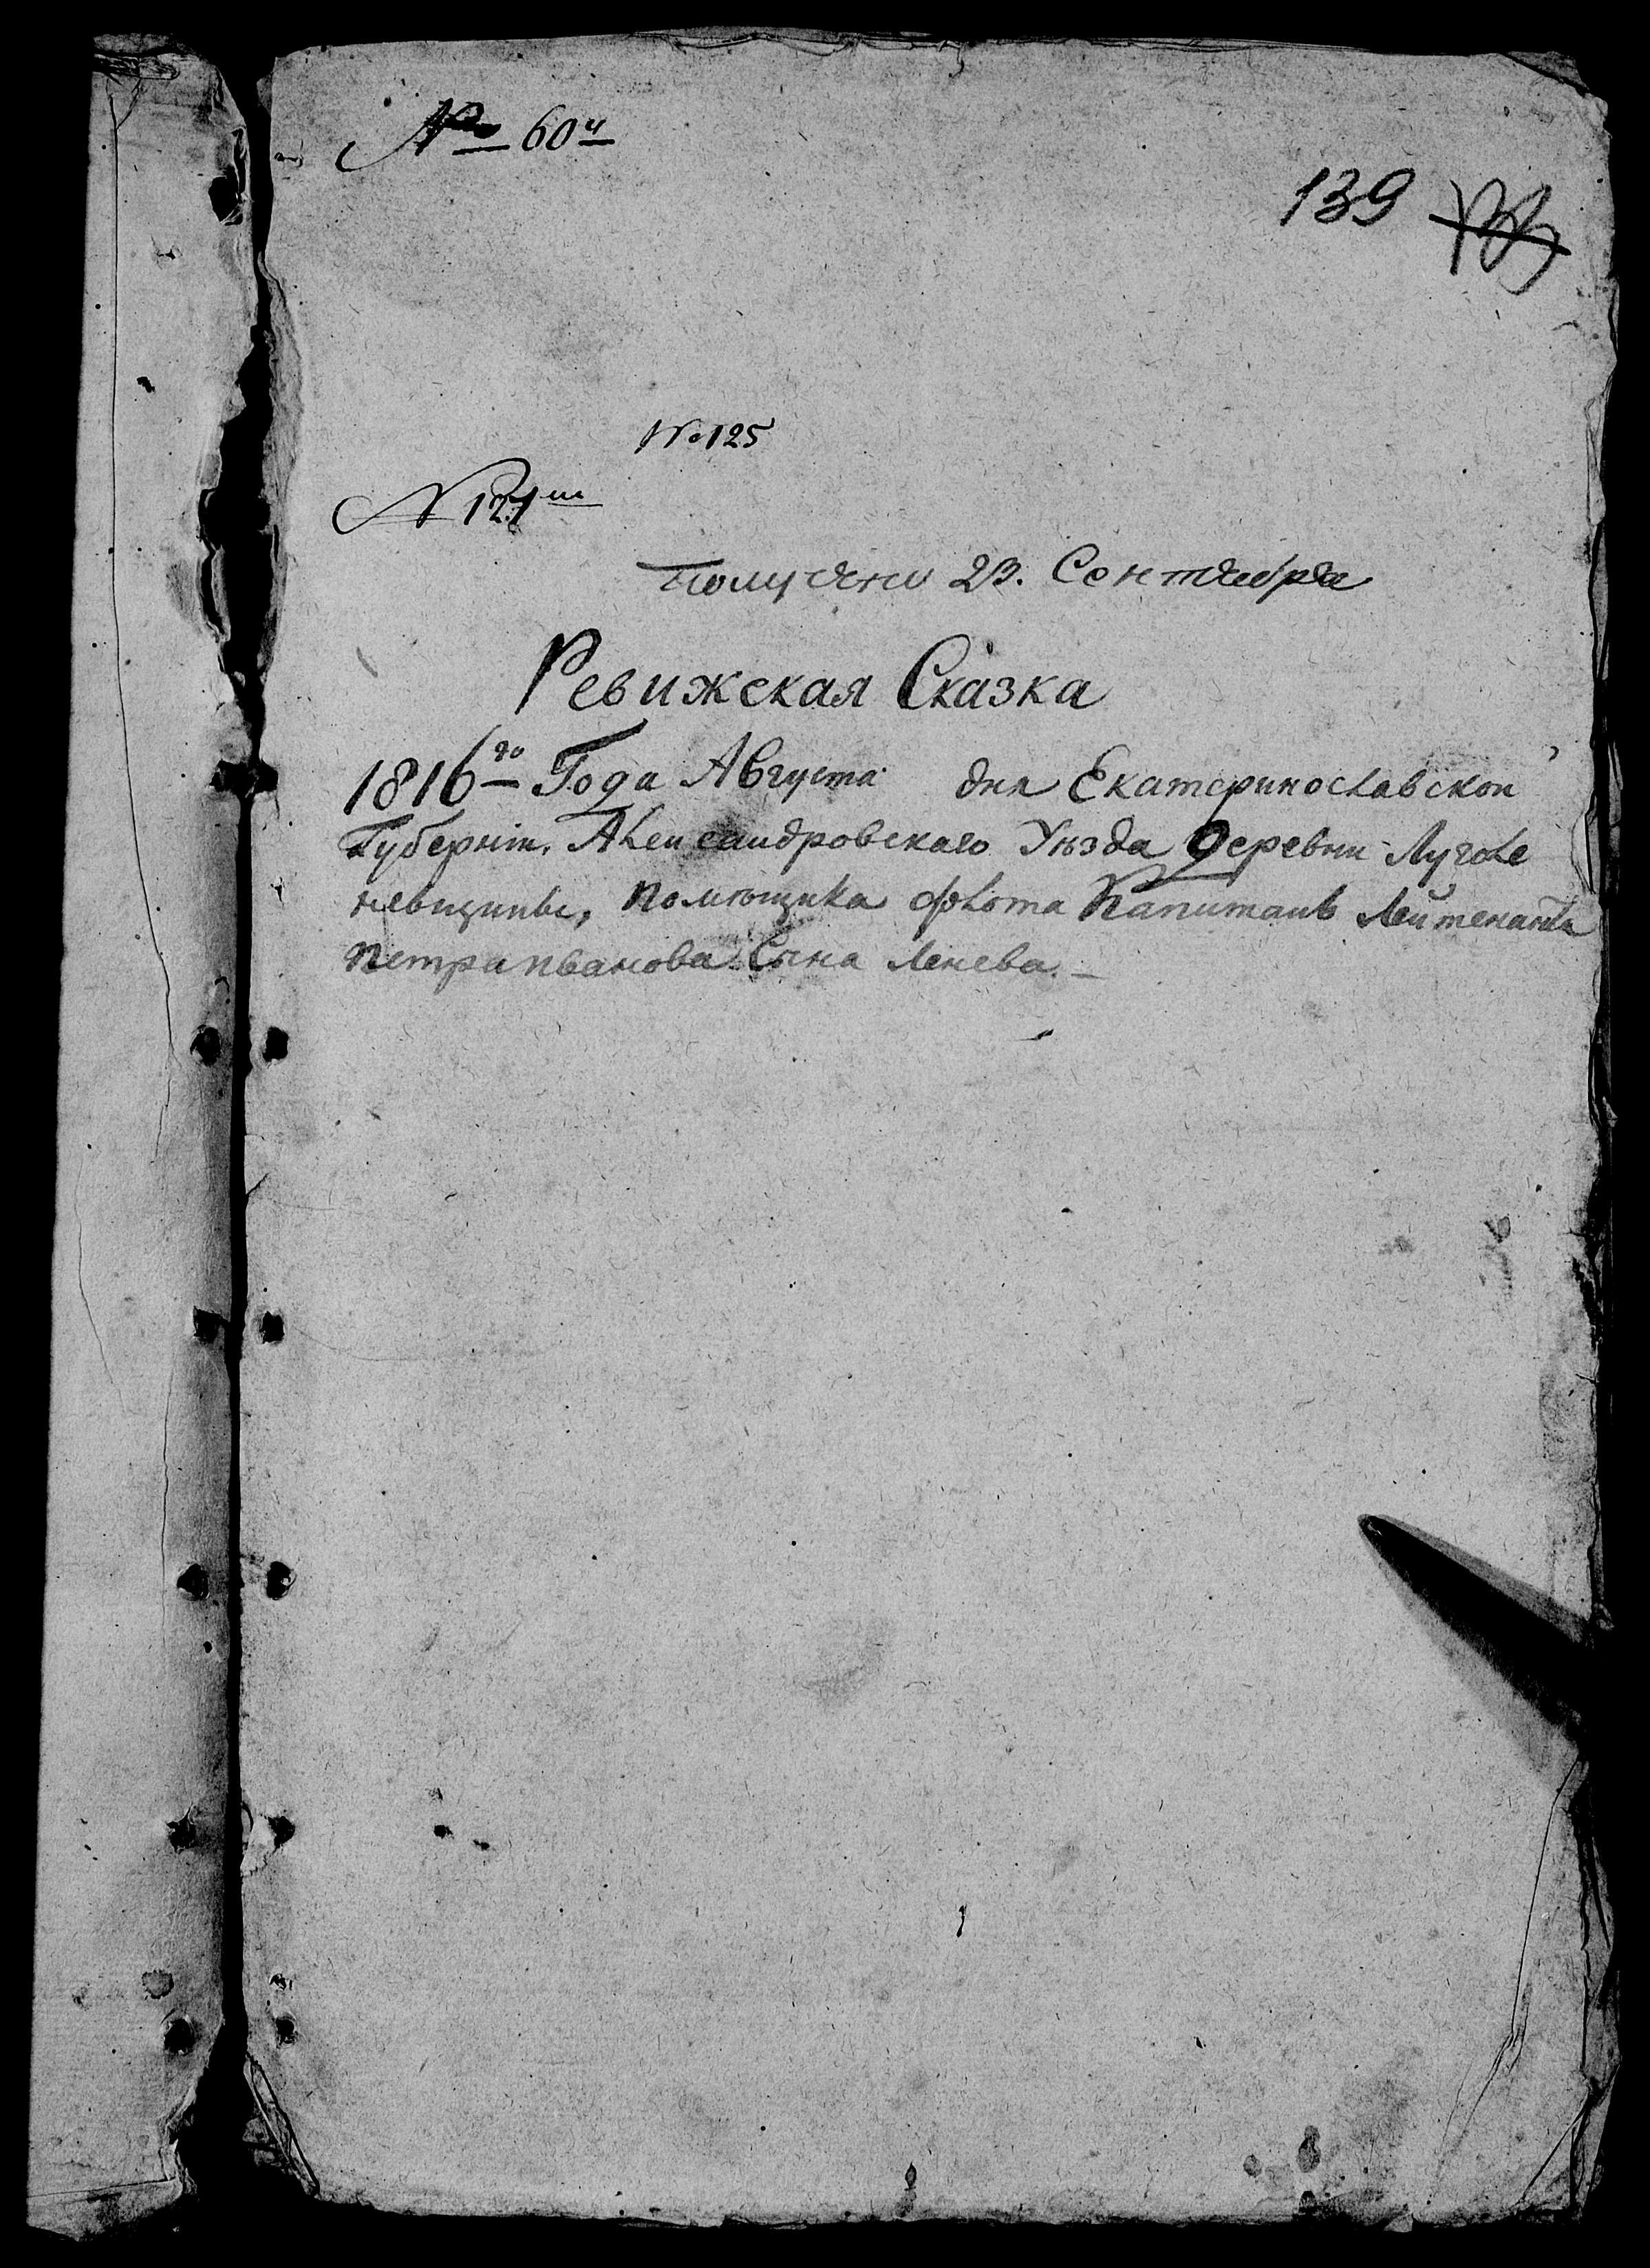 № 60й
139
№ 125
№ 121
Получена 23. Сентебря
Ревижская Сказка
1816го Года Августа дня Екатеринославской
Губернiи, Александровскаго Уѣзда Деревни Луголе
невщины, помѣщика флота Капитанъ Лейтенанта
Петра иванова Сына Ленева.